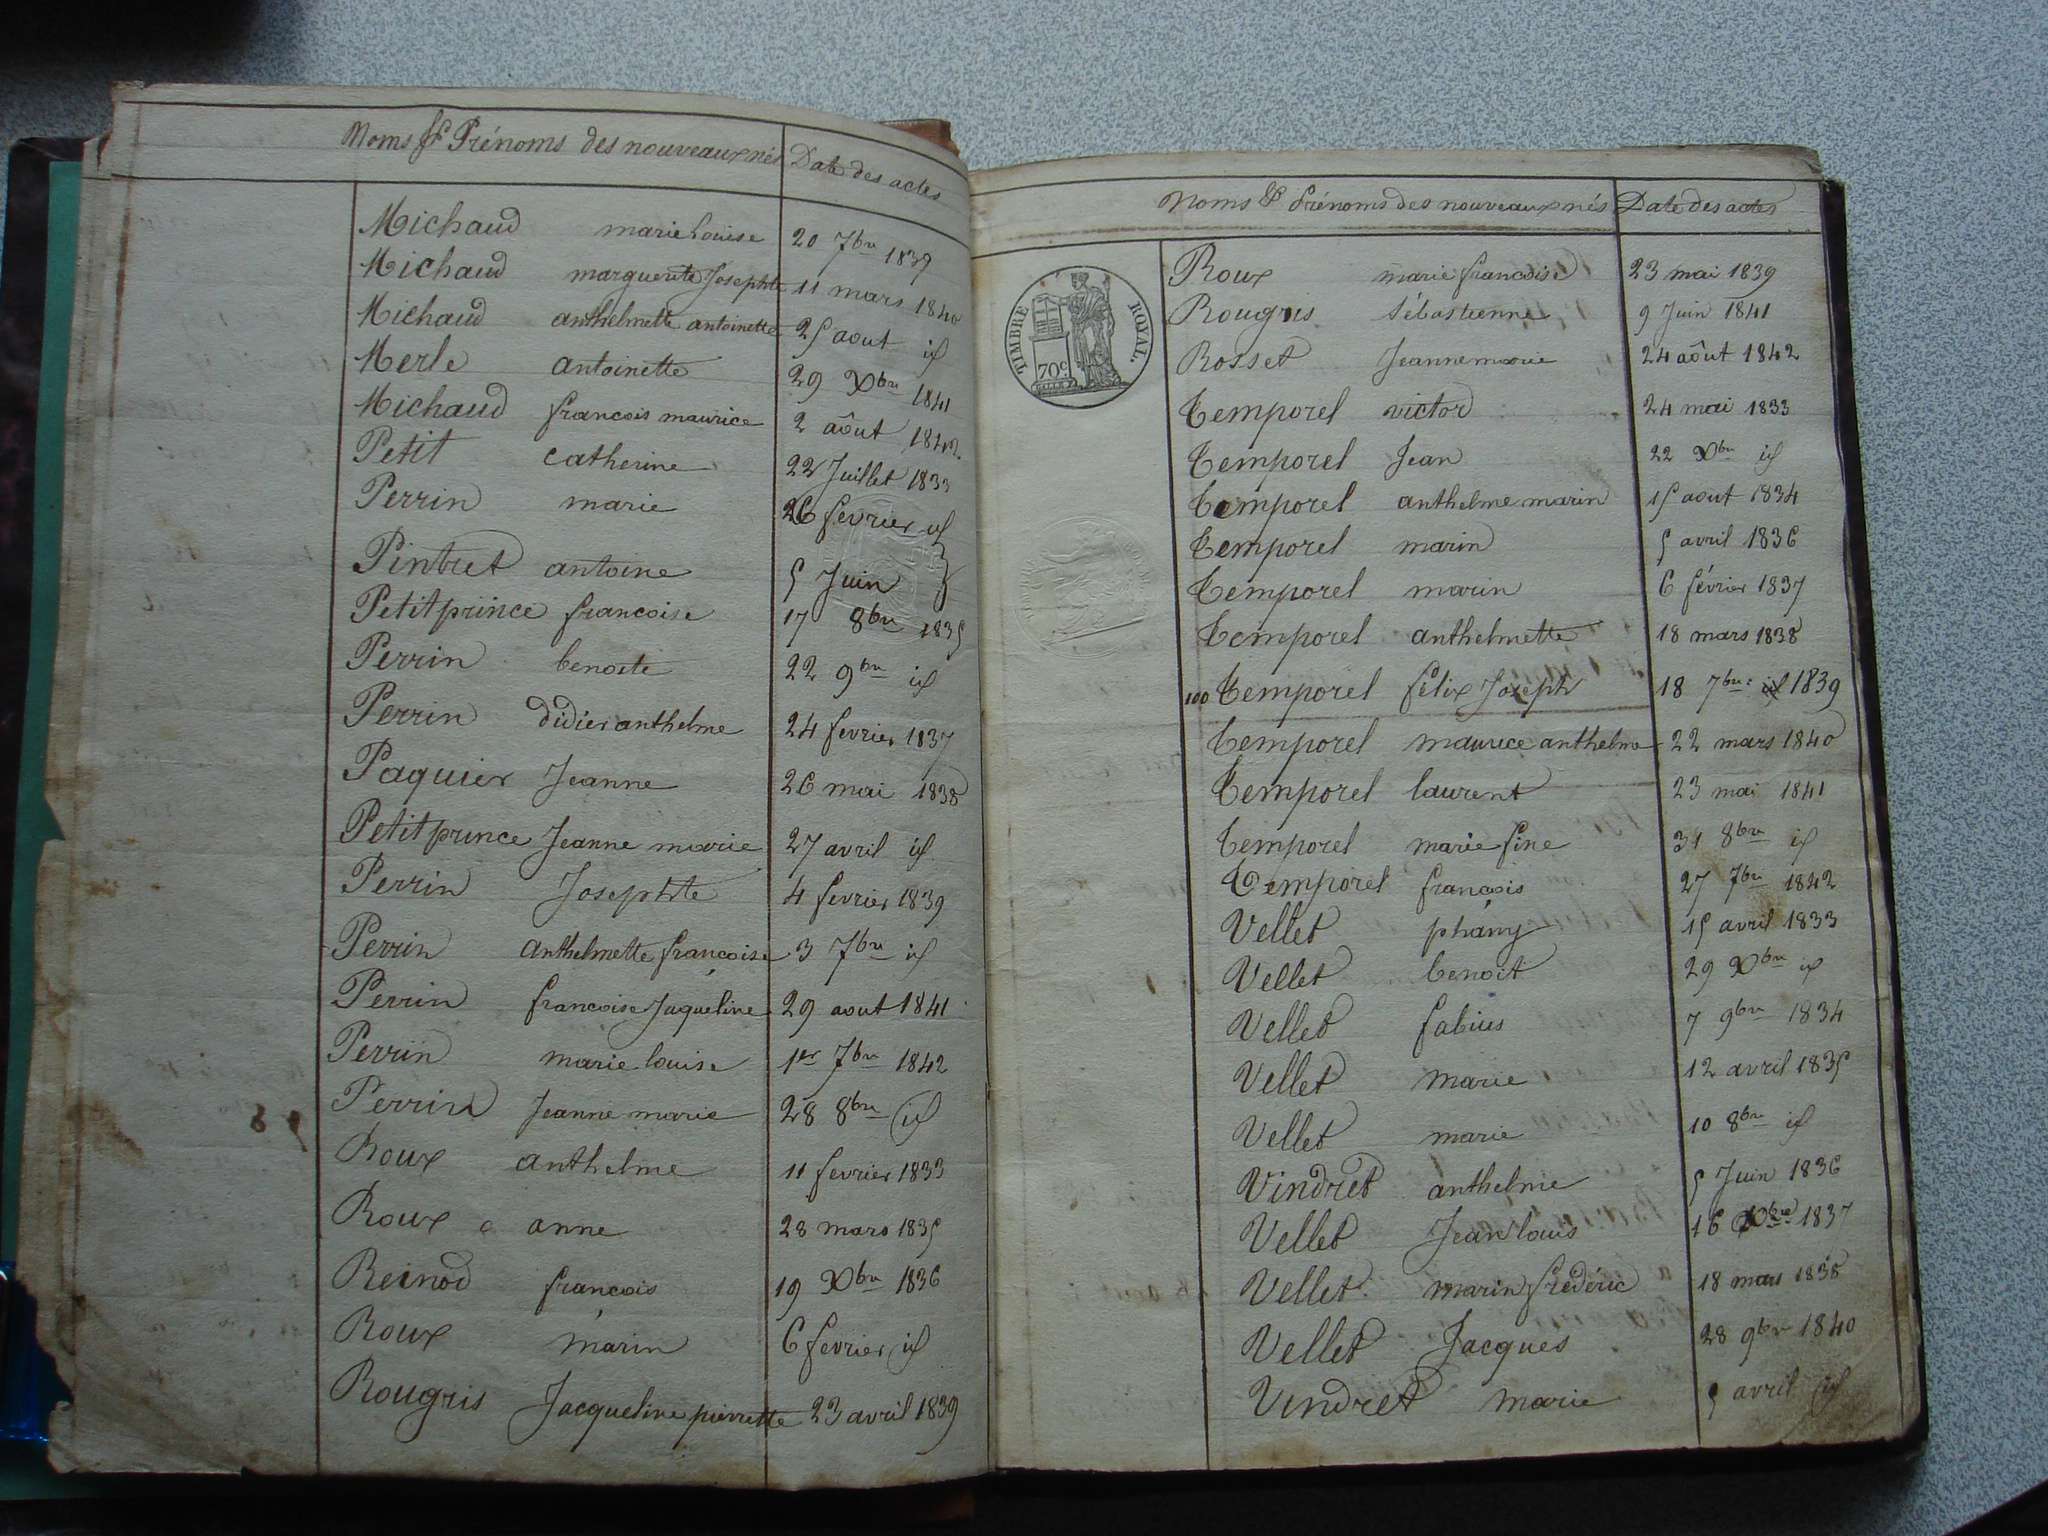 Noms & Prénoms des nouveaux nés Date des actes
Michaud marie Louise 20 7bre 1839
Michaud marguerite Josephte 11 mars 1840
Michaud anthelmette antoinette 25 aout id
Merle antoinette 29 Xbre 1841
Michaud francois maurice 2 août 1842
Petit catherine 22 Juillet 1833
Perrin marie 26 fevrier id
Pintret antoine 5 Juin
Petitprince francoise 17 8bre 1835
Perrin benoite 22 9bre id
Perrin didier anthelme 24 fevrier 1837
Paquier Jeanne 26 mai 1838
Petitprince Jeanne marie 27 avril id
Perrin Josephte 4 fevrier 1839
Perrin anthelmette françoise 3 7bre id
Perrin francoise Jaqueline 29 aout 1841
Perrin marie louise 1er 7bre 1842
Perrin Jeanne marie 28 8bre id
Roux anthelme 11 fevrier 1833
Roux anne 28 mars 1835
Reinod francois 19 Xbre 1836
Roux marin 6 fevrier id
Rougris Jacqueline pierrette 23 avril 1839
Noms & Prénoms des nouveaux nés Date des actes
TIMBRE ROYAL.
70c
Roux marie francoise 23 mai 1839
Rougris sébastienne 9 Juin 1841
Rosset Jeanne marie 24 août 1842
Temporel victor 24 mai 1833
Temporel Jean 22 Xbre id
Temporel anthelme marin 15 aout 1834
Temporel marin 5 avril 1836
Temporel marin 6 février 1837
Temporel anthelmette 18 mars 1838
100 Temporel félix Joseph 18 7bre id 1839
Temporel maurice anthelme 22 mars 1840
Temporel laurent 23 mai 1841
Temporel marie fine 31 8bre id
Temporel françois 27 7bre 1842
Vellet phany 15 avril 1833
Vellet benoit 29 Xbre id
Vellet fabius 7 9bre 1834
Vellet marie 12 avril 1835
Vellet marie 10 8bre id
Vindret anthelme 5 Juin 1836
Vellet Jean louis 16 Xbre 1837
Vellet marin frédéric 18 mars 1838
Vellet Jacques 28 9bre 1840
Vindret marie 5 avril id